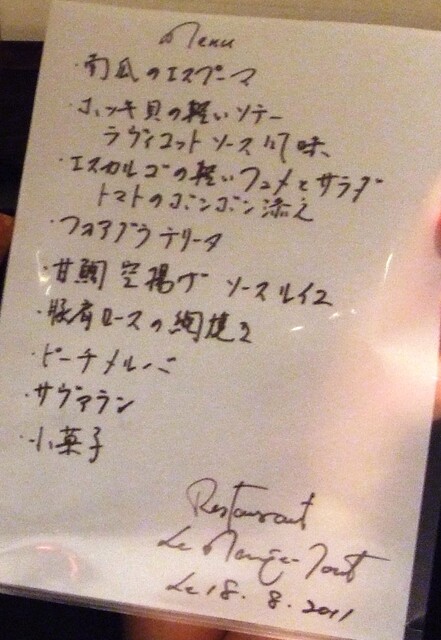 Menu
・南瓜のエスプーマ
・ホッキ貝の軽いソテー
ラヴィゴットソース 風味
・エスカルゴの軽いフュメとサラダ
トマトのボンボン添え
・フォアグラテリーヌ
・甘鯛 空揚げ ソースルイユ
・豚肩ロースの網焼き
・ピーチメルバ
・サヴァラン
・小菓子
Restaurant
Le Mange-Tout
Le 18. 8. 2011